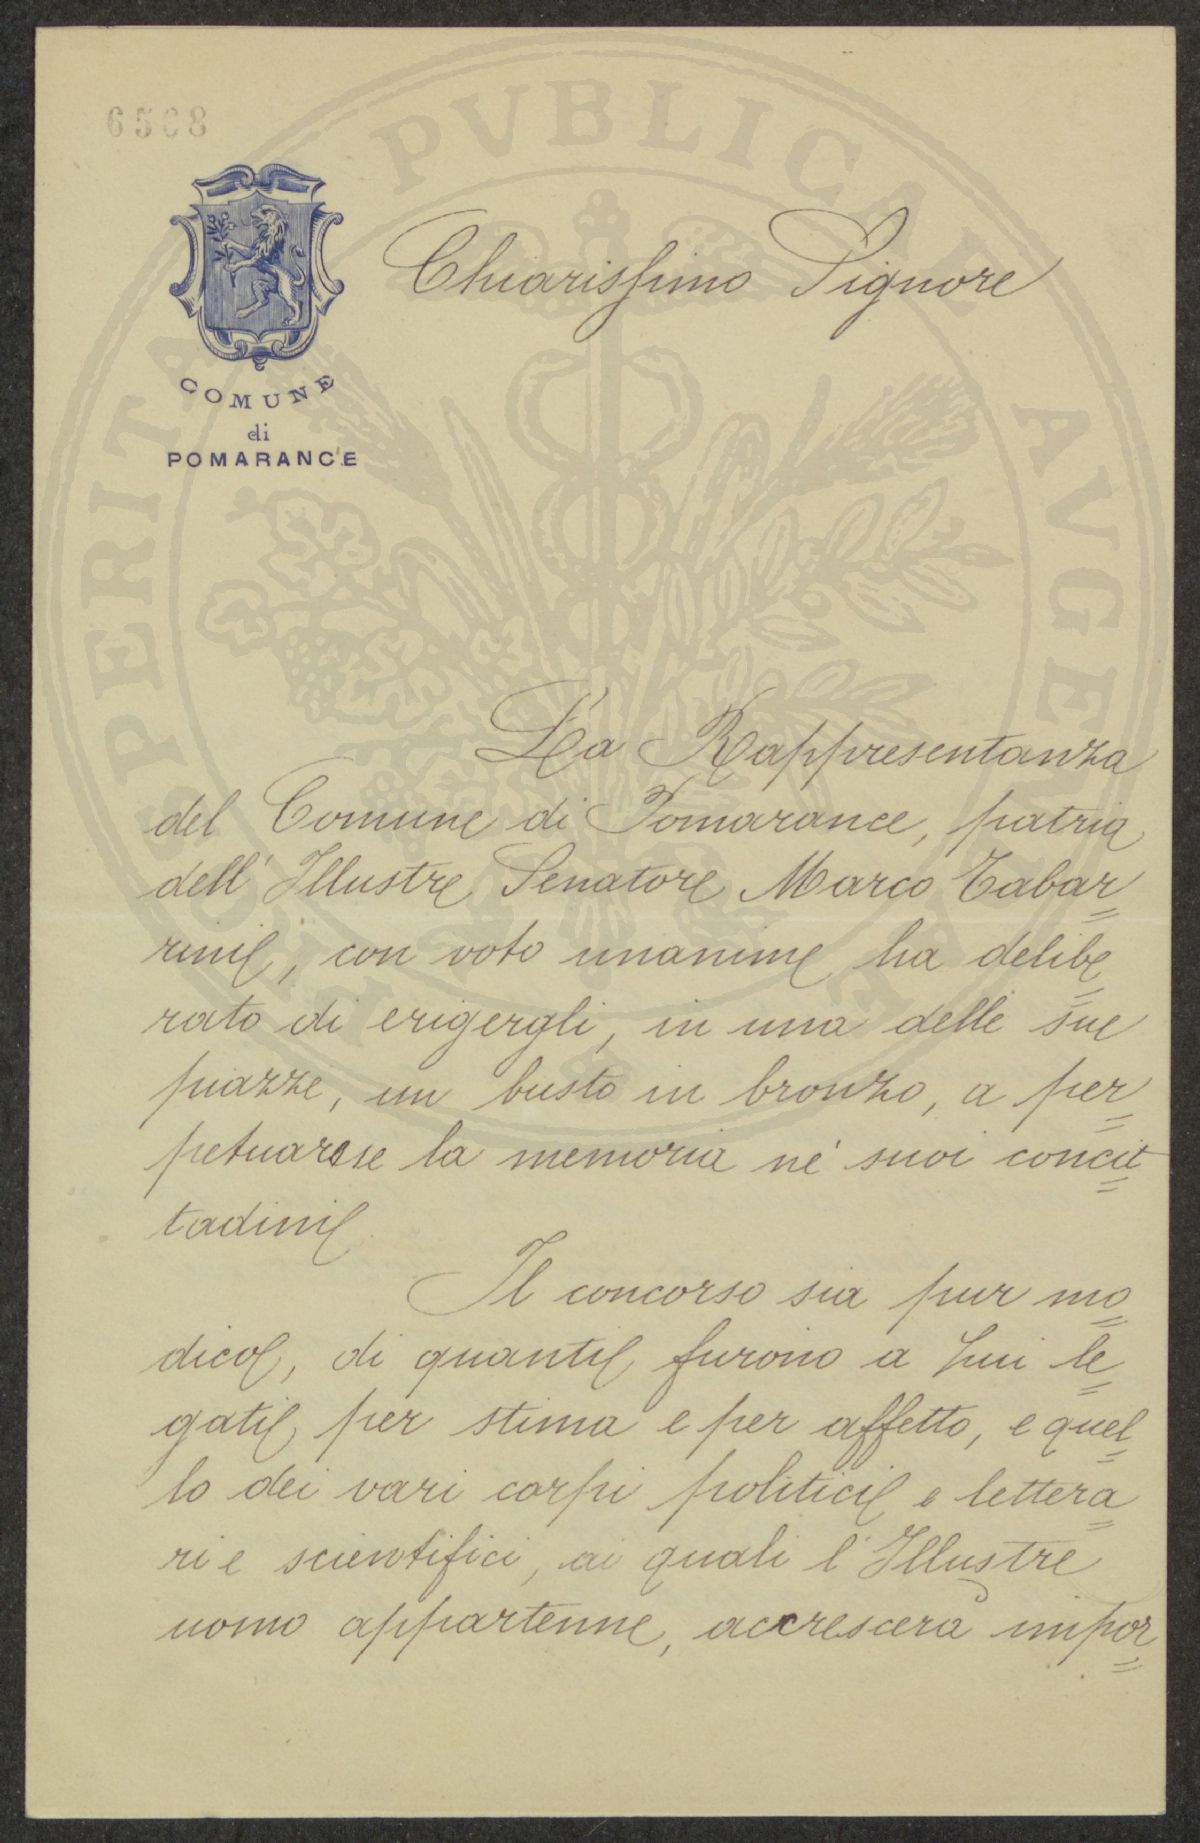 6508
COMUNE
di
POMARANCE
Chiarissimo Signore
La Rappresentanza
del Comune di Pomarance, patria
dell'Illustre Senatore Marco Tabar=
rini, con voto unanime ha delibe=
rato di erigergli, in una delle sue
piazze, un busto in bronzo, a per=
petuarsse la memoria ne' suoi concit=
tadini
Il concorso sia pur mo=
dico, di quanti furono a Lui le=
gati per stima e per affetto, e quel=
lo dei vari corpi politici e lettera=
ri e scientifici, ai quali l'Illustre
uomo appartenne, accrescerà impor=
PROSPERITAS PVBLICA AVGENDA